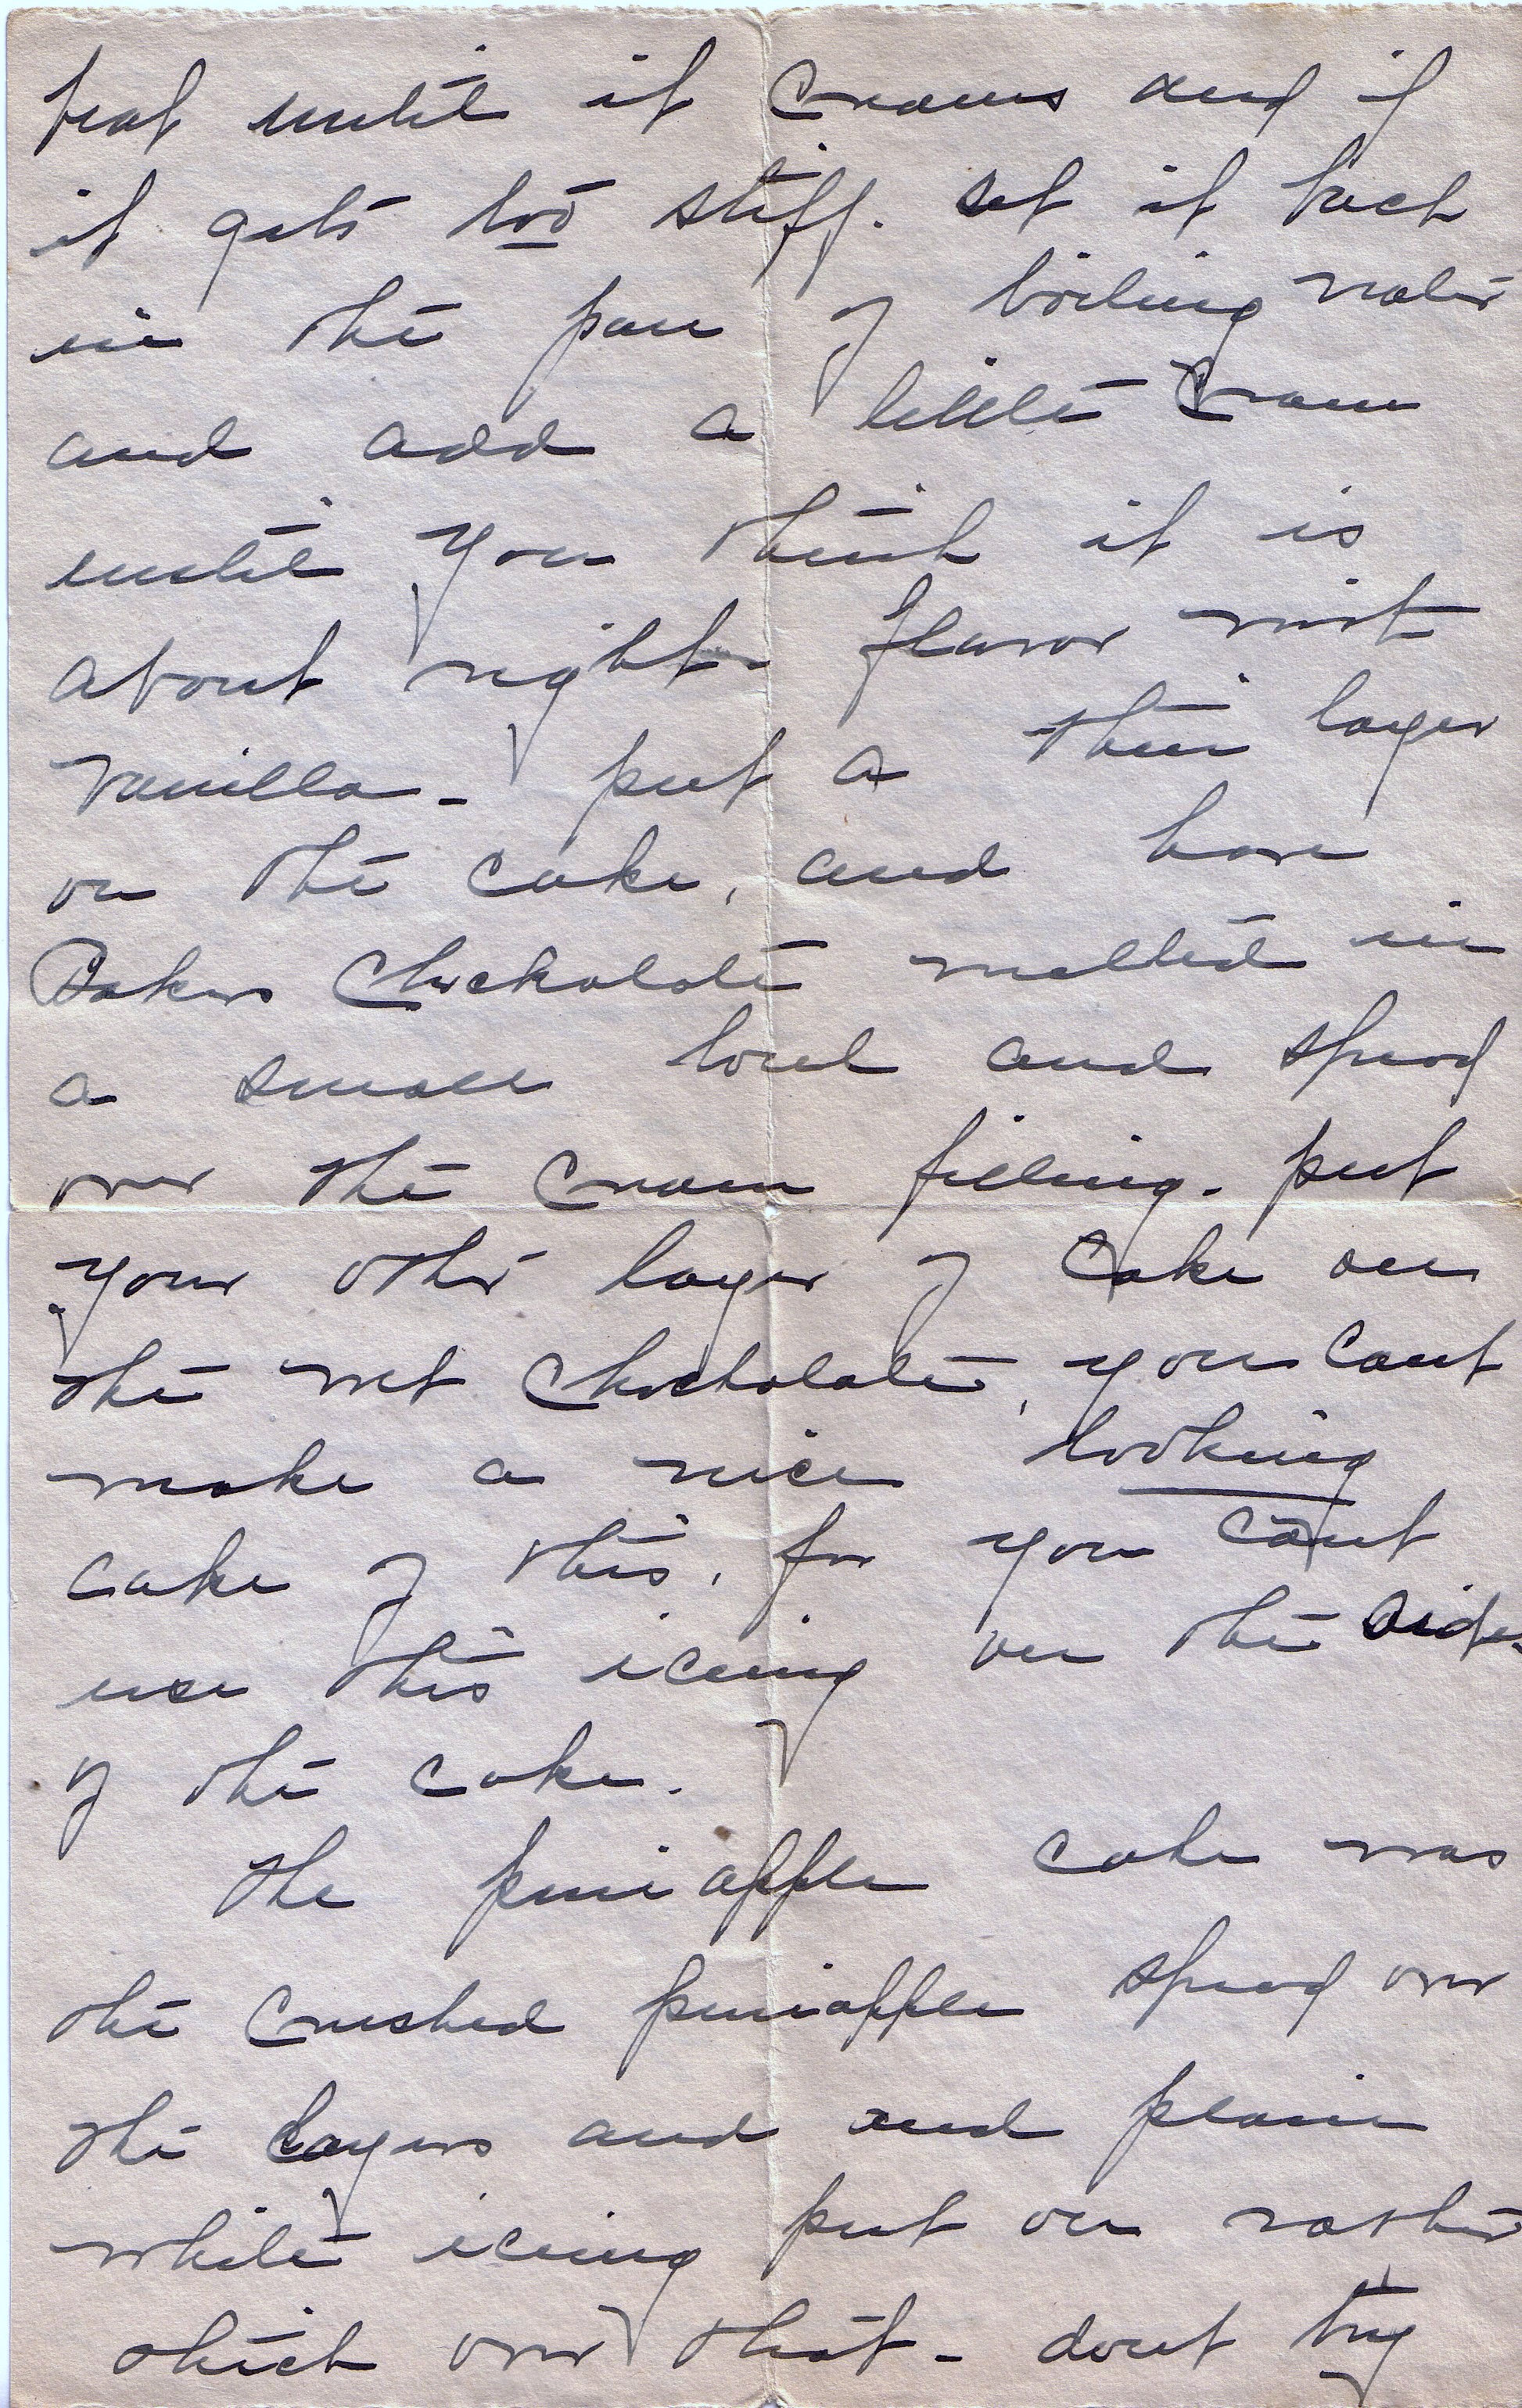 beat until it creams and if
it gets too stiff. set it back
in the pan of boiling water
and add a little cream
until you think it is
about right - flavor with
vanilla - put a thin layer
on the cake, and have
Bakers Chockolate melted in
a small bowl and spread
over the cream filling. put
your other layer of cake on
the wet Chockolate, you cant
make a nice looking
cake of this, for you cant
use this icing on the sides
of the cake.
The pineapple cake was
the crushed pineapple spread over
the layers and and plain
white icing put on rather
thick over that - dont try